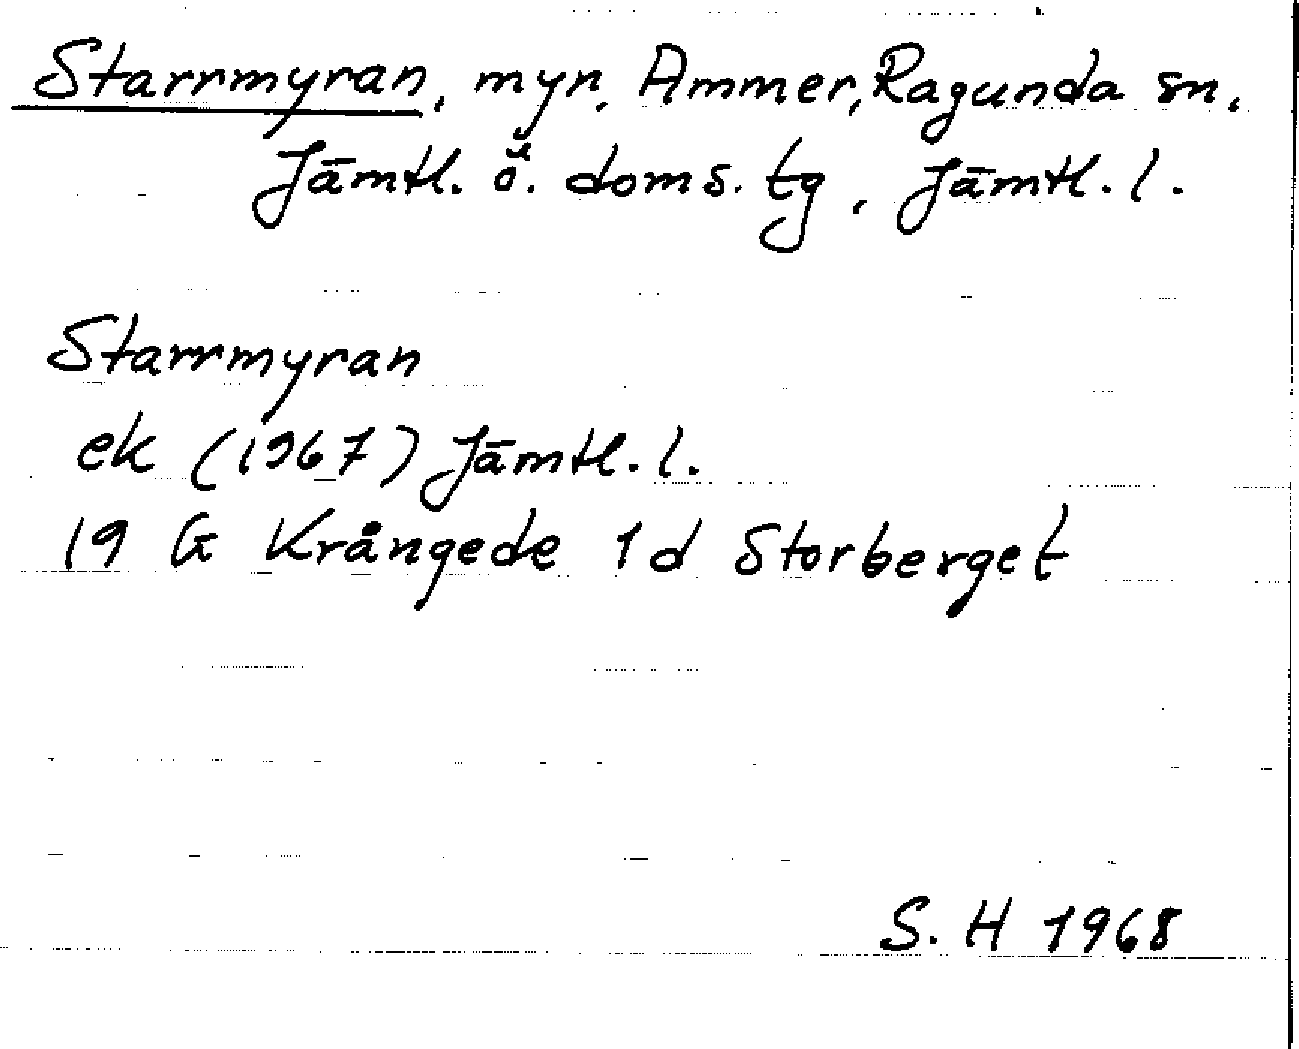 Starrmyran, myr, Ammer, Ragunda sn,
Jämtl. ö. doms. tg, Jämtl. l.
Starrmyran
ek (1967) Jämtl. l.
19 G Krångede 1d Storberget
S. H 1968